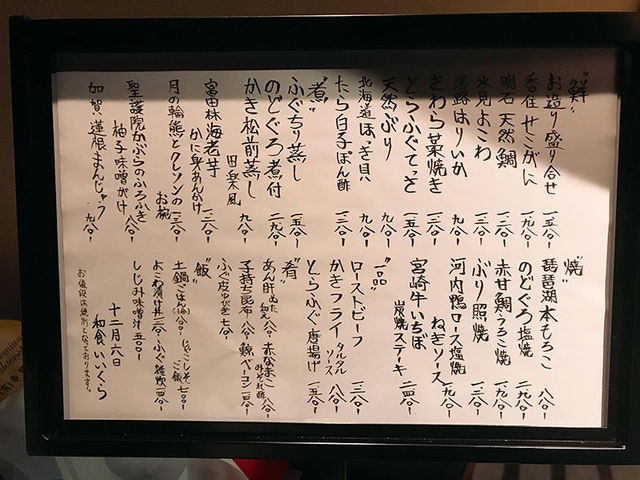 "鮮"
お造り盛り合せ 一五〇〜
香住せこがに 一九〇〜
明石天然鯛 一三〇〜
氷見よこわ 一三〇〜
淡路はりいか 九〇〜
さわら藁焼き 一三〇〜
とらふぐてっさ 一五〇〜
天然ぶり 九〇〜
北海道ほっき貝 九〇〜
たら白子ぽん酢 一三〇〜
"煮"
ふぐちり蒸し 一五〇〜
のどぐろ煮付 一九〇〜
かき松前蒸し 田楽風 九〇〜
富田林海老芋 かに身あんかけ 一三〇〜
月の輪熊とクレソンの お椀 一三〇〜
聖護院かぶらのふろふき 柚子味噌がけ 八〇〜
加賀蓮根まんじゅう 九〇〜
"焼"
琵琶湖本もろこ 八〇〜
のどぐろ塩焼 一九〇〜
赤甘鯛うろこ焼 一九〇〜
ぶり照焼 一三〇〜
河内鴨ロース塩焼 ねぎソース 一九〇〜
宮崎牛いちぼ 炭焼ステーキ 二四〇〜
"一品"
ローストビーフ 一三〇〜
かきフライ タルタルソース 八〇〜
とらふぐ唐揚げ 一五〇〜
"肴"
あん肝ぬた和え 八〇〜 赤なまこ みぞれ酢 八〇〜
子持ち昆布 八〇〜 鯨ベーコン 二四〇〜
ふぐ皮ゆびき 七〇〜
"飯"
土鍋ごはん(一合) 八〇〜 じゃこしそご飯 七〇〜
よこわ漬け丼 一三〇〜 ふぐ雑炊 二四〇〜
しじみ味噌汁 五〇〜
十二月六日
和食いいくら
お値段は税別となっております。